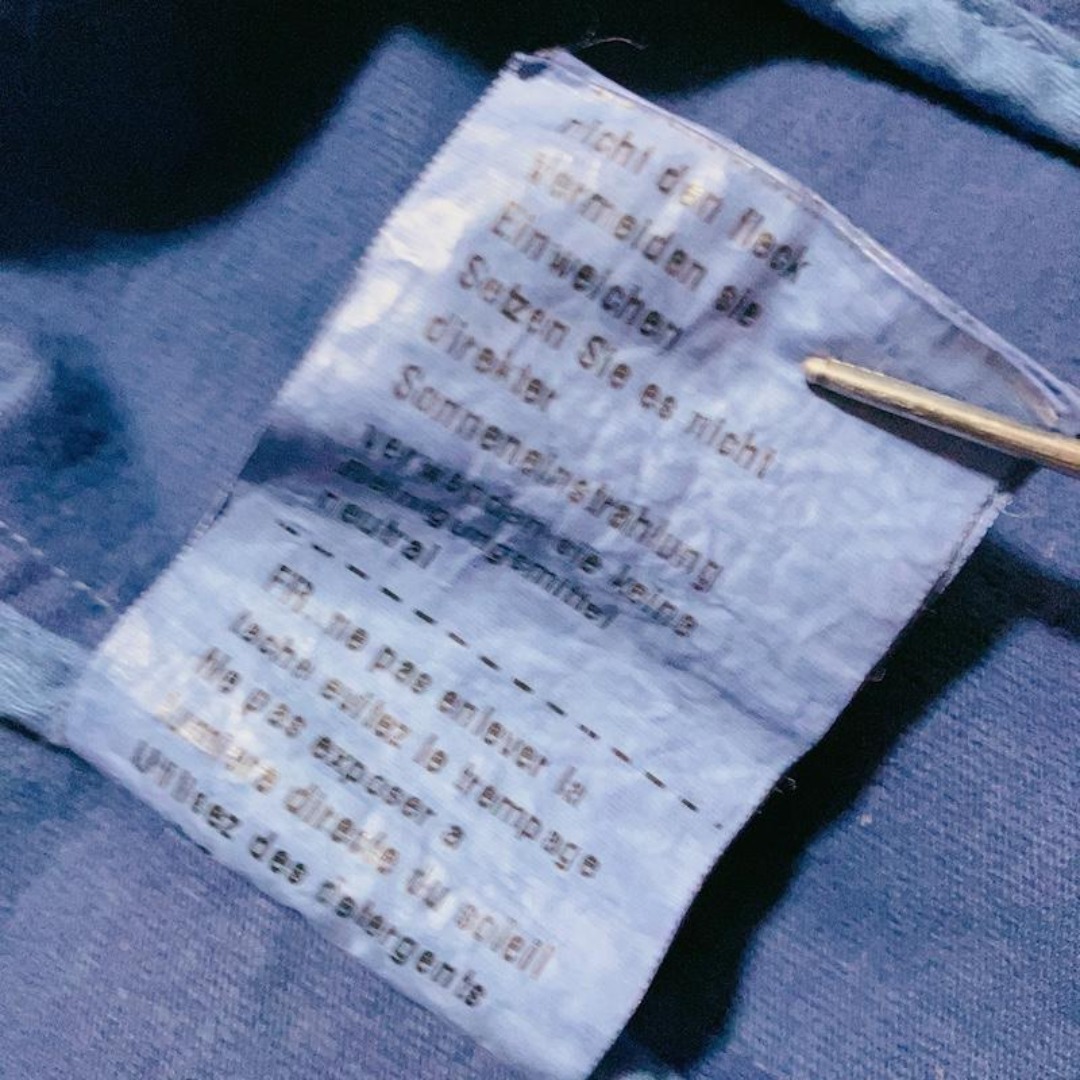 nicht den fleck
Vermeiden sie
Einweichen
Setzen Sie es nicht
direkter
Sonneneinstrahlung
Verwenden sie keine
neutral
FR..ne pas enlever la
tache evitez le trempage
Ne pas exposer a
lumiere directe du soleil
Utilisez des detergents